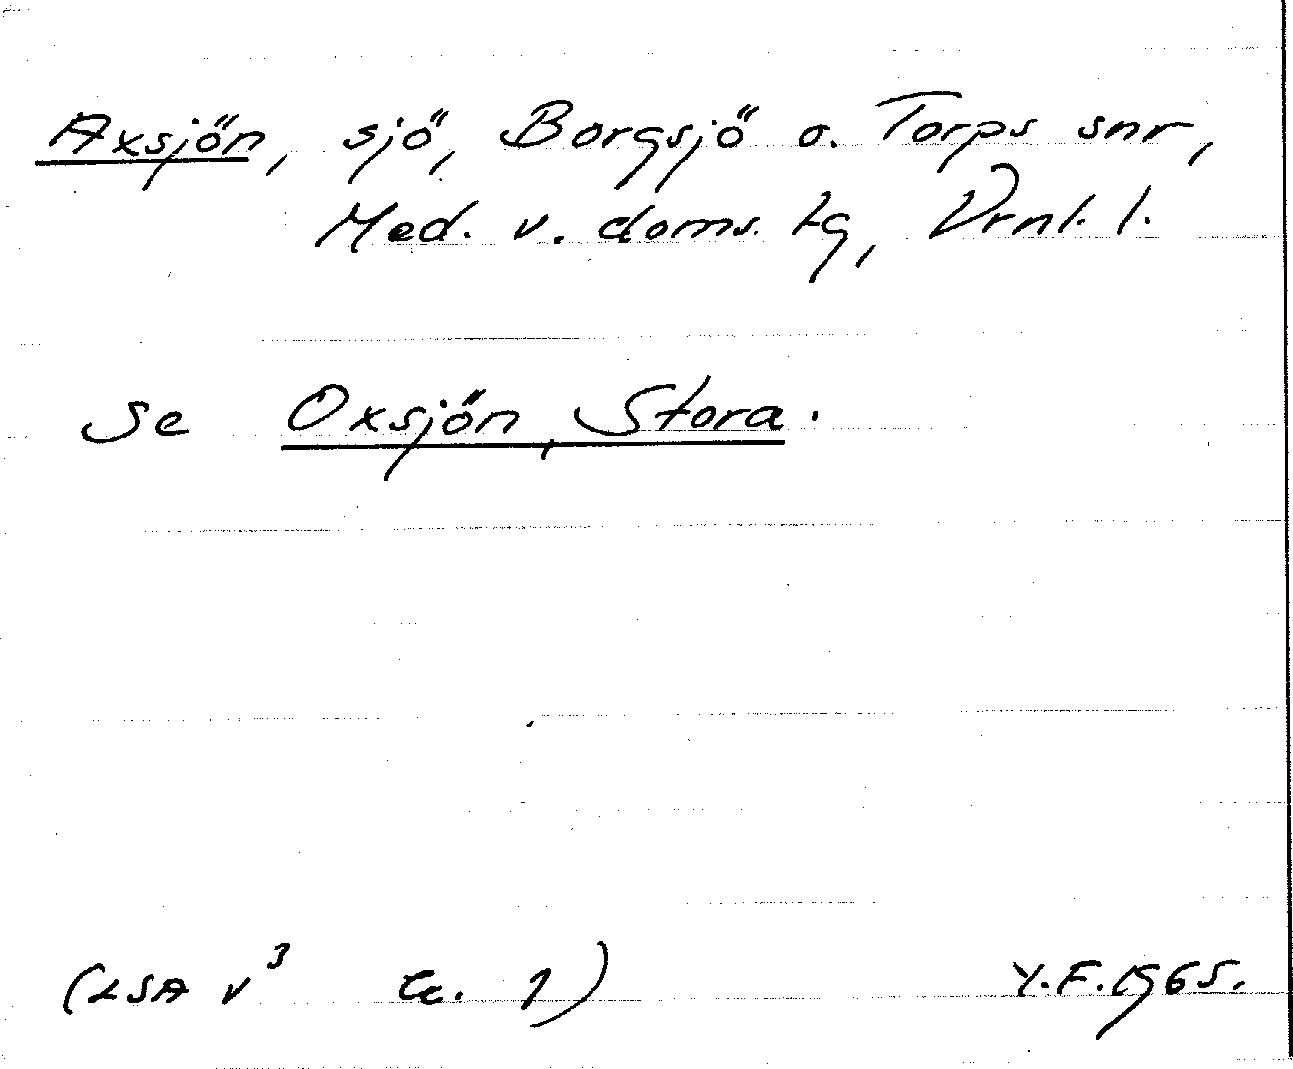 Axsjön, sjö, Borgsjö o. Torps snr,
Med. v. doms. tg, Vrnl. l.
Se Oxsjön, Stora.
(LSA v³ 1) Y.F. 1965.